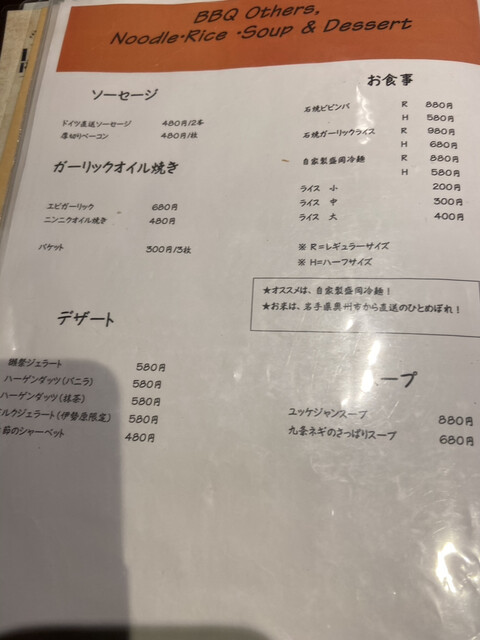 BBQ Others,
Noodle・Rice・Soup & Dessert
ソーセージ
ドイツ直送ソーセージ 480円/2本
厚切りベーコン 480円/枚
ガーリックオイル焼き
エビガーリック 680円
ニンニクオイル焼き 480円
バケット 300円/3枚
デザート
ジェラート 580円
ハーゲンダッツ(バニラ) 580円
ハーゲンダッツ(抹茶) 580円
ルクジェラート(伊勢原限定) 580円
節のシャーベット 480円
お食事
石焼ビビンバ R 880円
H 580円
石焼ガーリックライス R 980円
H 680円
自家製盛岡冷麺 R 880円
H 580円
ライス 小 200円
ライス 中 300円
ライス 大 400円
※ R=レギュラーサイズ
※ H=ハーフサイズ
★オススメは、自家製盛岡冷麺!
★お米は、岩手県奥州市から直送のひとめぼれ!
ープ
ユッケジャンスープ 880円
九条ネギのさっぱりスープ 680円